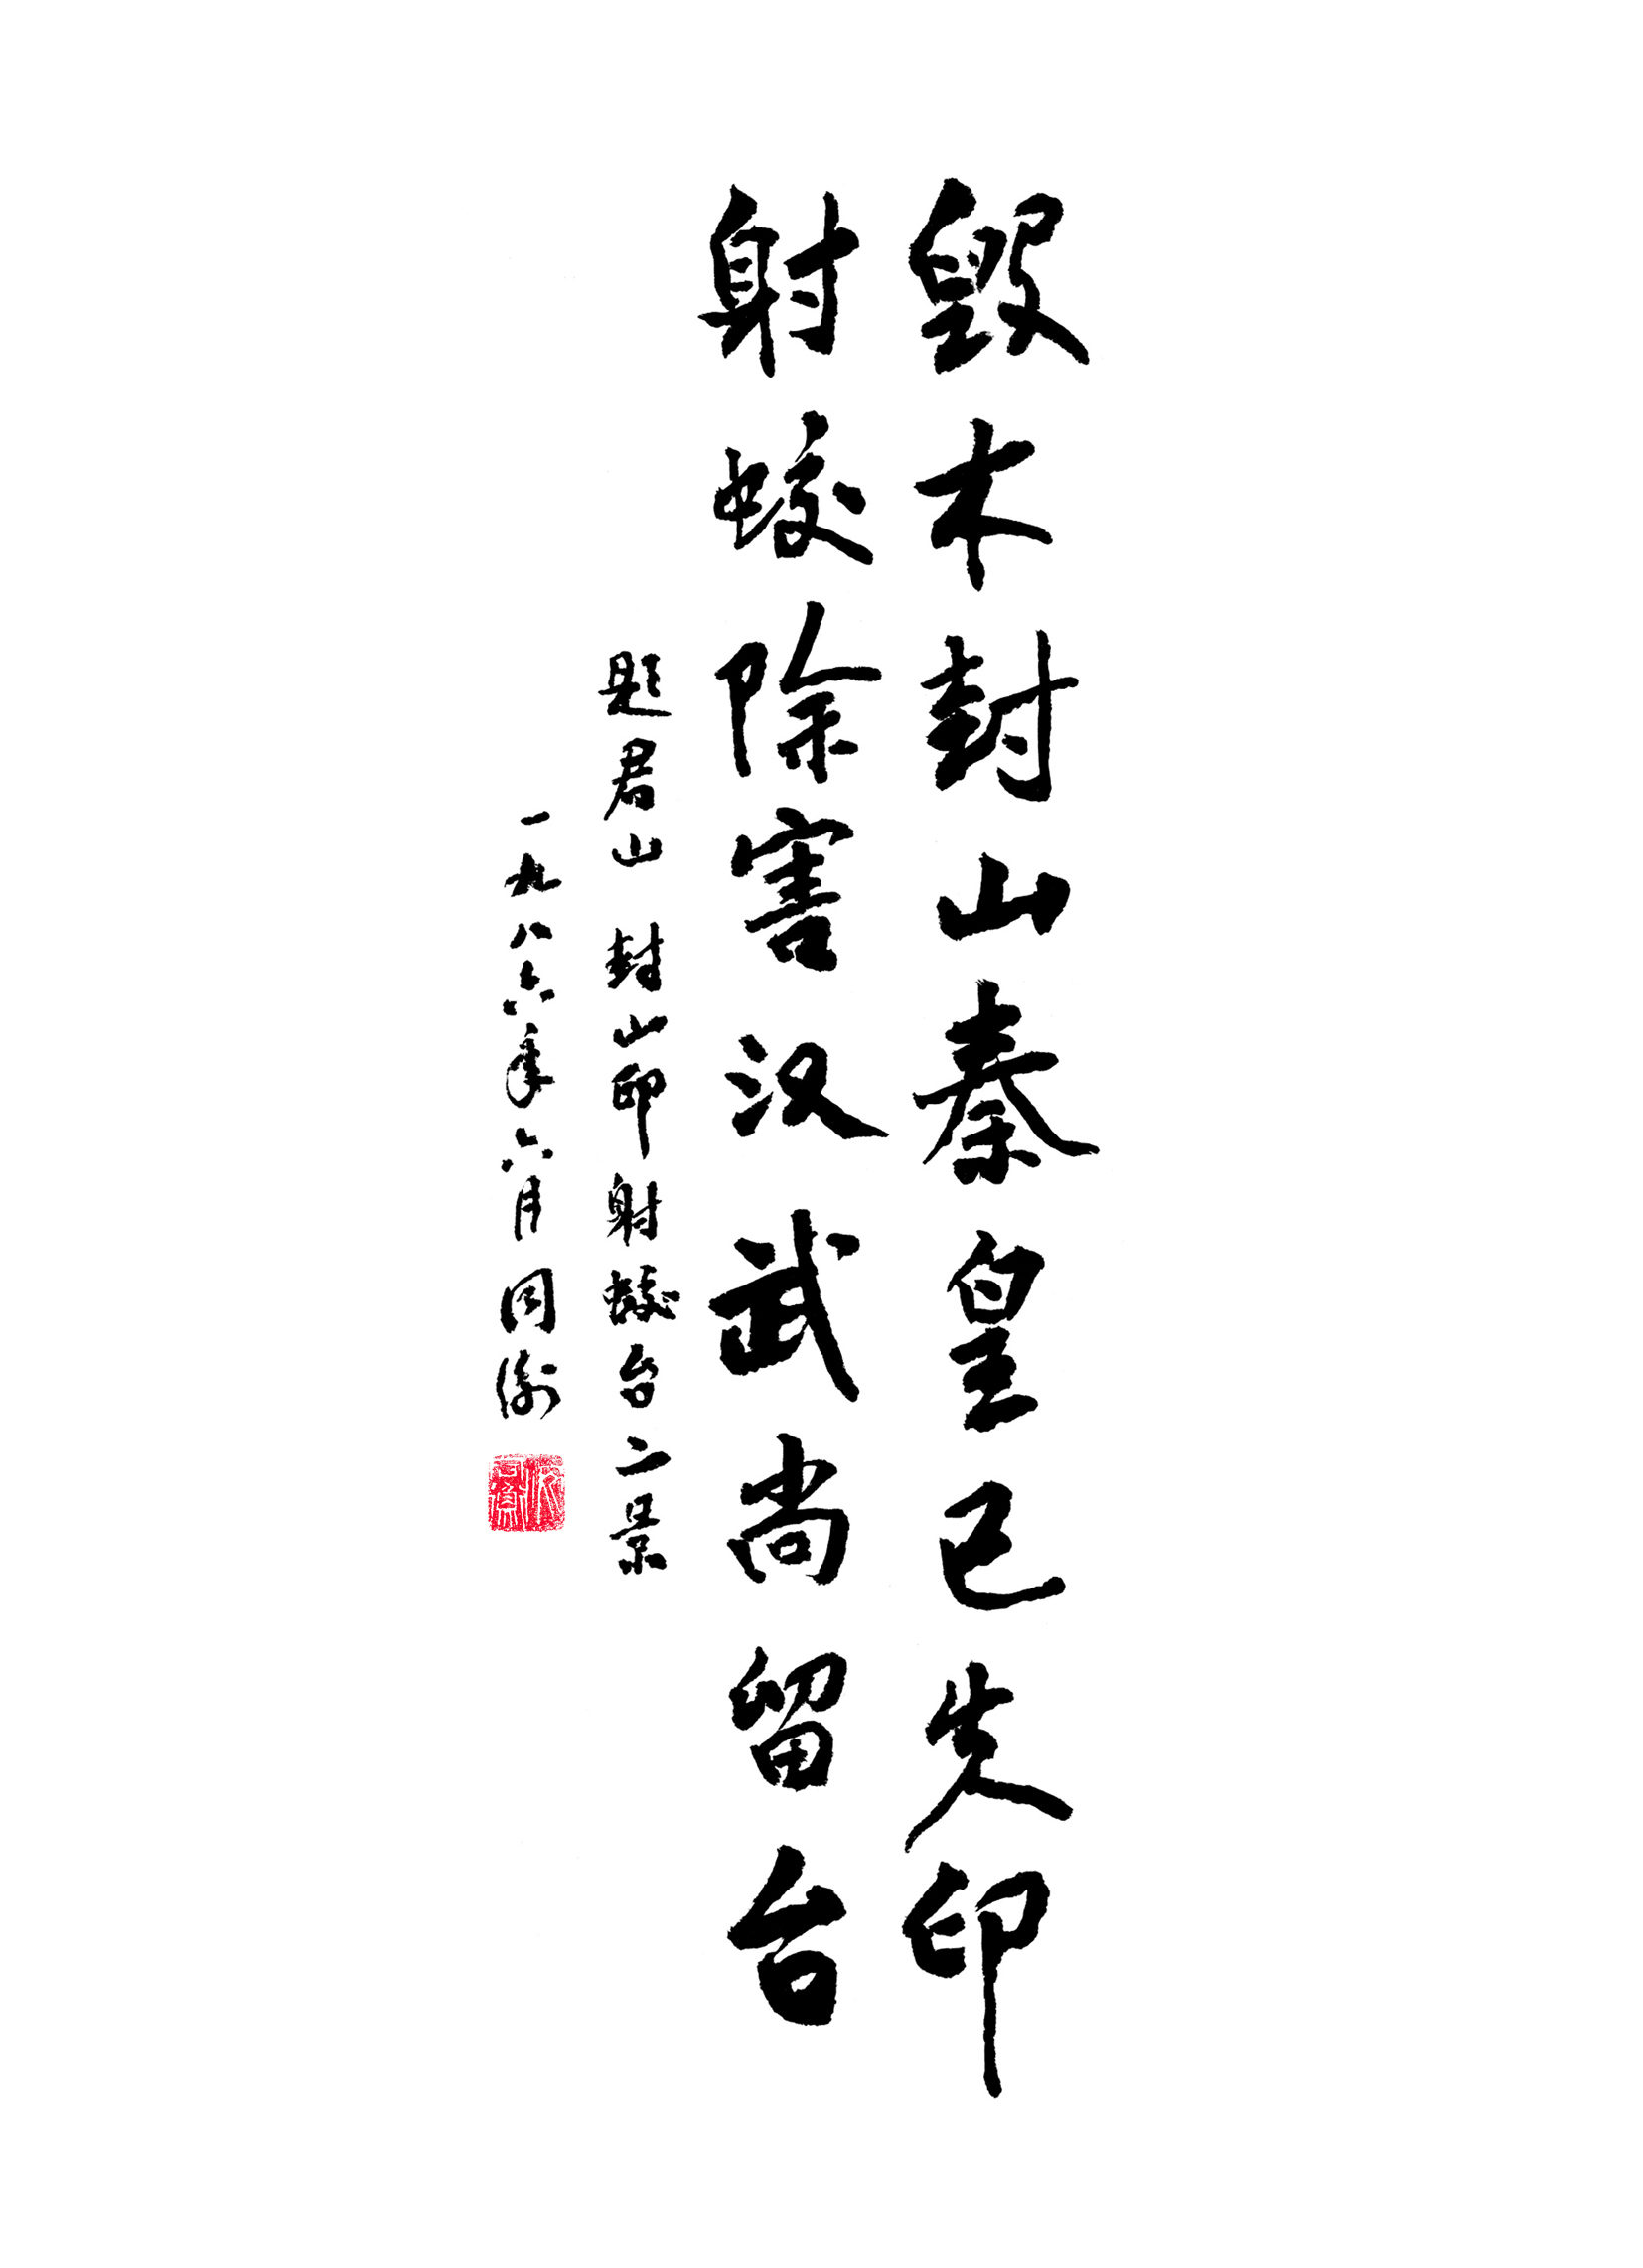 毁木封山秦皇已失印
射蛟除害汉武尚留台
题君山 封山印射蛟台二景
一九八六年六月周